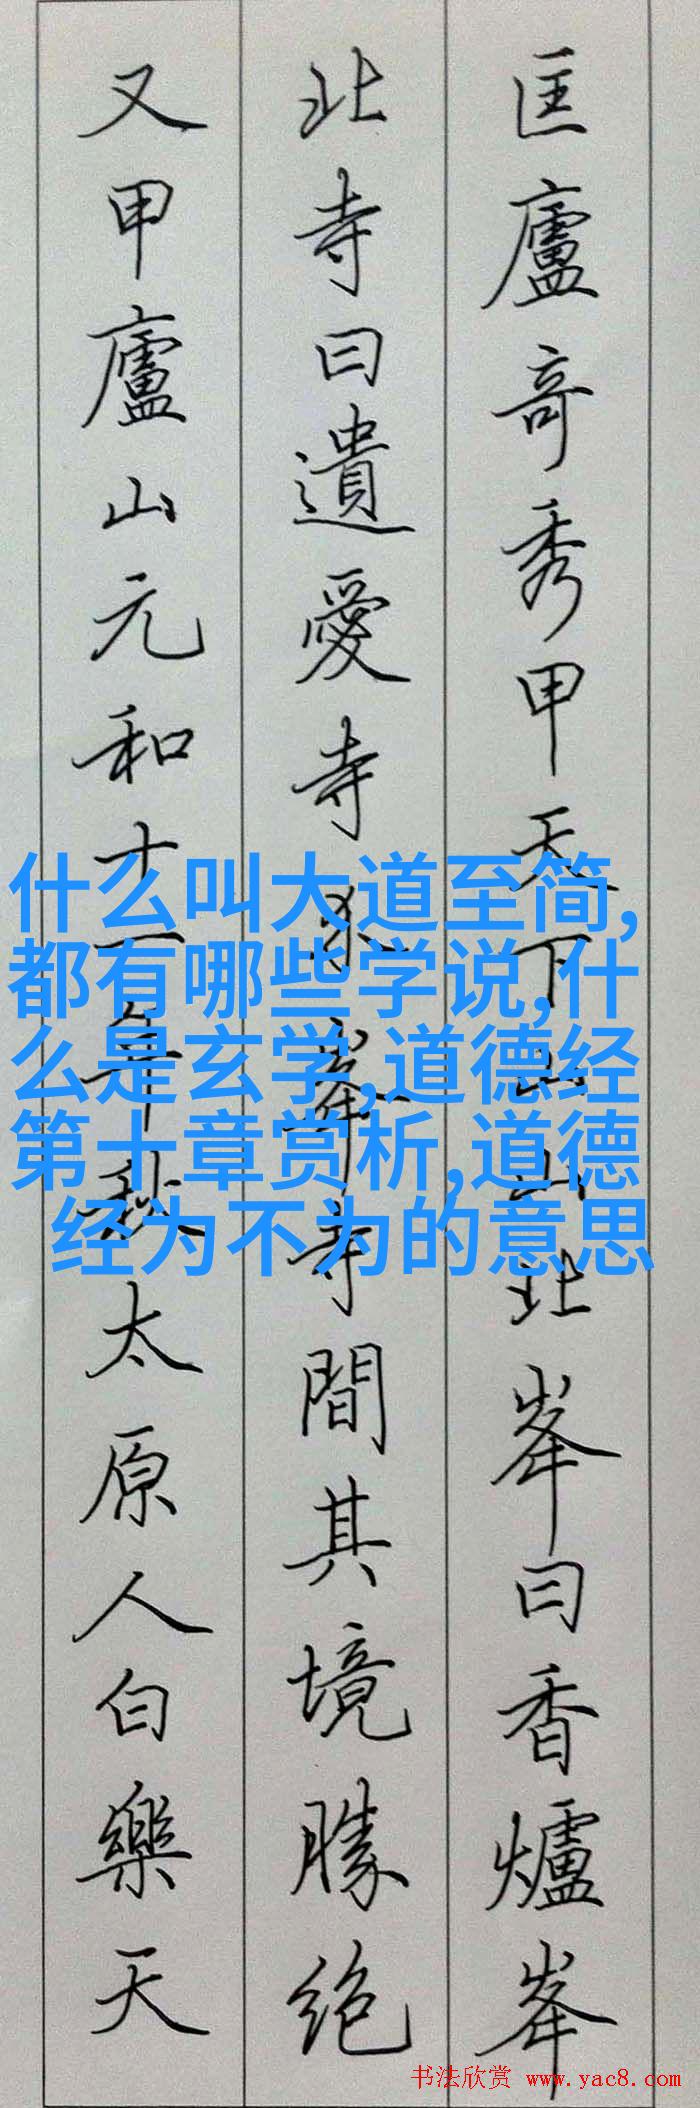 匡廬奇秀甲天下山山北峯曰香爐峯
北寺曰遺愛寺介峯寺間其境勝绝
又甲廬山元和十一年秋太原人白樂天
什么叫大道至简,
都有哪些学说,什
么是玄学,道德经
第十章赏析,道德
经为不为的意思
书法欣赏 www.yac8.com